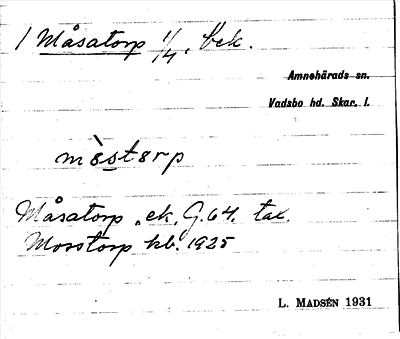 1 Måsatorp 1/4, bek.
Amnehärads sn.
Vadsbo hd. Skar. l.
mòstɘrp
Måsatorp, ek. G. 64. tax.
Morstorp kb. 1925
L. MADSÉN 1931